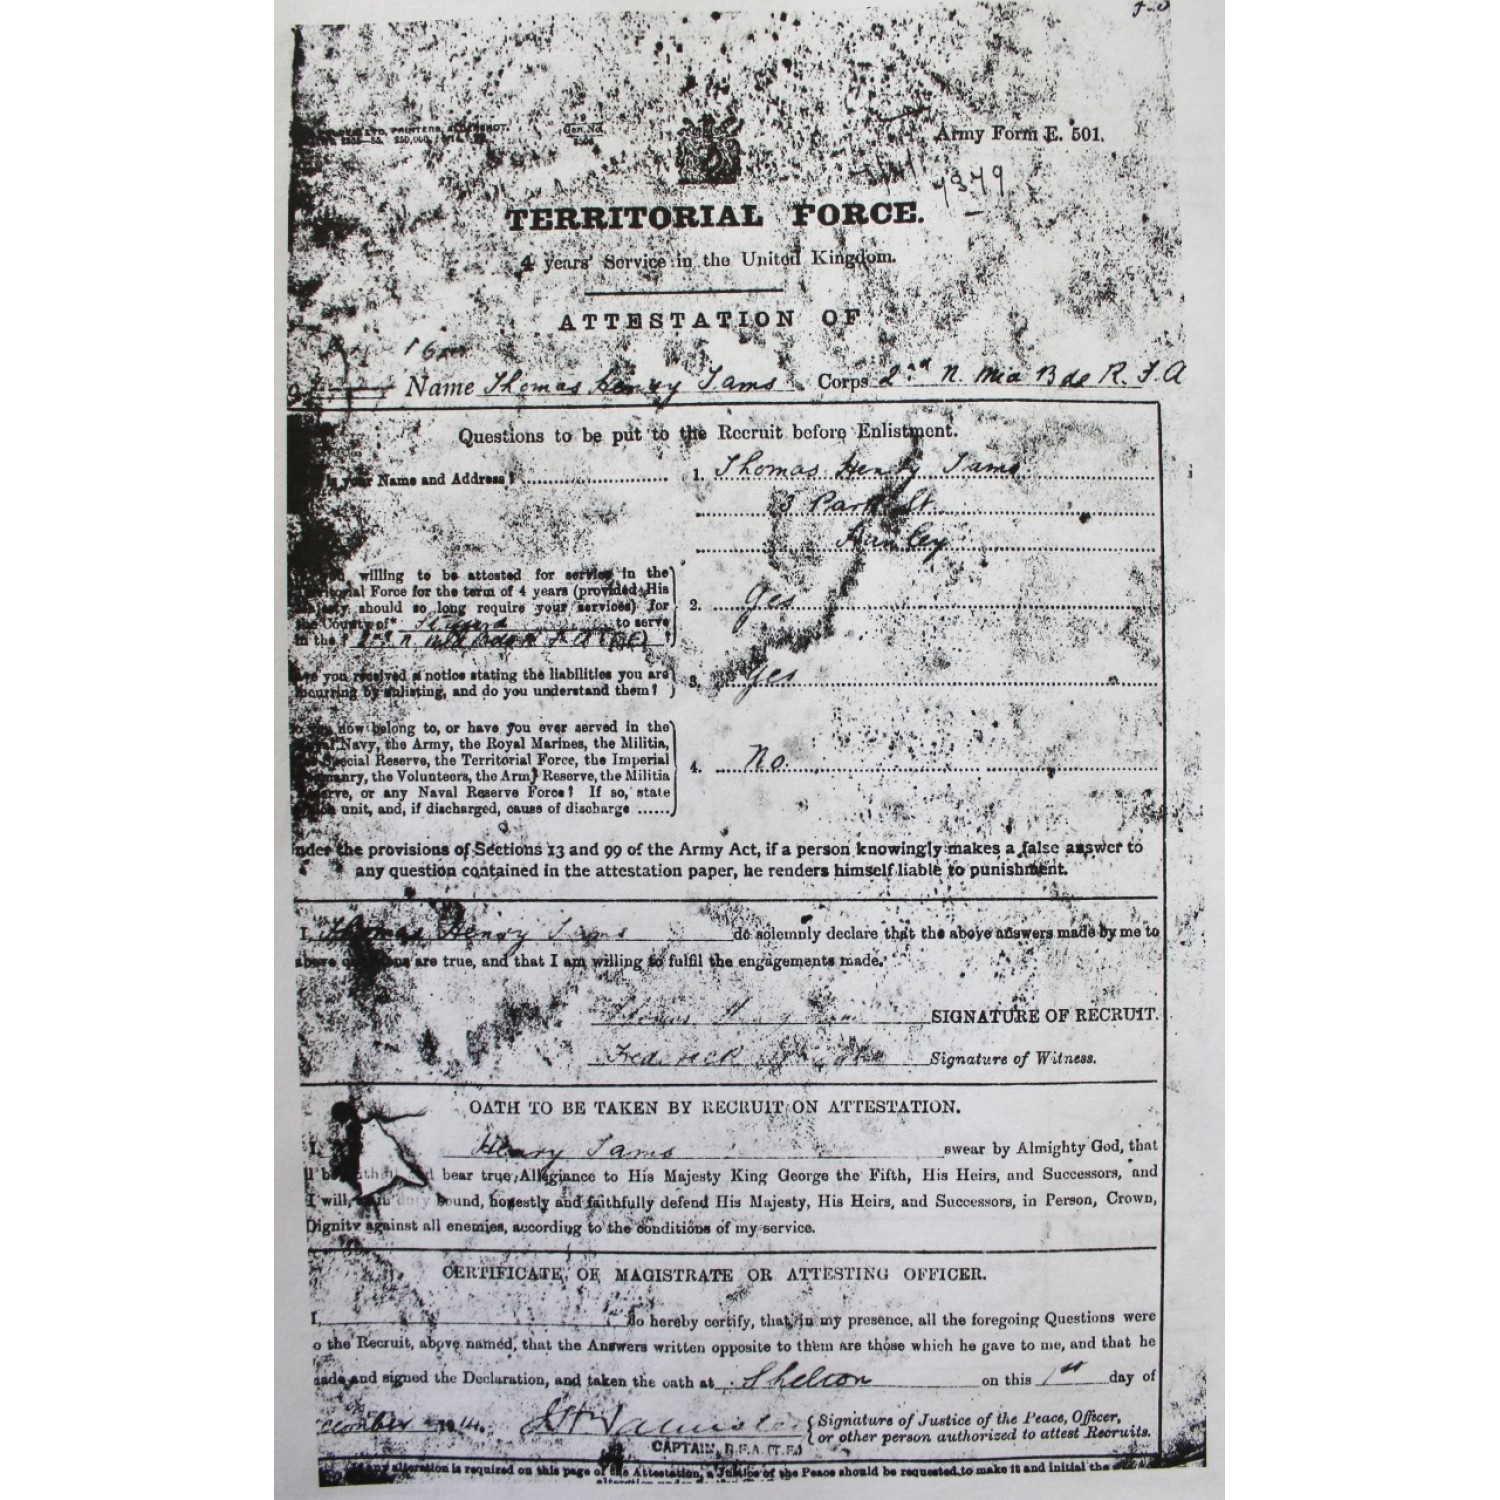 LTD, PRINTERS, ALDERSHOT.
Gen. No.
250,000.
Army Form E. 501.
1379
TERRITORIAL FORCE.
4 years' Service in the United Kingdom.
ATTESTATION OF
Name Thomas Henry Tams Corps 2nd N. Mid Bde R. F. A
Questions to be put to the Recruit before Enlistment.
your Name and Address? 1. Thomas Henry Tams
3 Park St
Hanley
willing to be attested for service in the
Force for the term of 4 years (provided His
should so long require your services) for
the County of* Stafford to serve
in the N. Mid Bde R. F. A
2. Yes
you received a notice stating the liabilities you are
incurring by enlisting, and do you understand them? 3. Yes
now belong to, or have you ever served in the
Navy, the Army, the Royal Marines, the Militia,
Special Reserve, the Territorial Force, the Imperial
the Volunteers, the Army Reserve, the Militia
or any Naval Reserve Force? If so, state
unit, and, if discharged, cause of discharge ......
4. No.
nder the provisions of Sections 13 and 99 of the Army Act, if a person knowingly makes a false answer to
any question contained in the attestation paper, he renders himself liable to punishment.
I, Thomas Henry Tams do solemnly declare that the above answers made by me to
above questions are true, and that I am willing to fulfil the engagements made.
Thomas SIGNATURE OF RECRUIT.
Frederick Signature of Witness.
OATH TO BE TAKEN BY RECRUIT ON ATTESTATION.
I, Henry Tams swear by Almighty God, that
bear true Allegiance to His Majesty King George the Fifth, His Heirs, and Successors, and
I will, duty bound, honestly and faithfully defend His Majesty, His Heirs, and Successors, in Person, Crown,
Dignity against all enemies, according to the conditions of my service.
CERTIFICATE OF MAGISTRATE OR ATTESTING OFFICER.
I, do hereby certify, that, in my presence, all the foregoing Questions were
o the Recruit, above named, that the Answers written opposite to them are those which he gave to me, and that he
made and signed the Declaration, and taken the oath at Shelton on this 1st day of
cember 1914. Signature of Justice of the Peace, Officer,
or other person authorized to attest Recruits.
CAPTAIN, R.F.A. (T.F.)
If any alteration is required on this page of the Attestation, a Justice of the Peace should be requested to make it and initial the